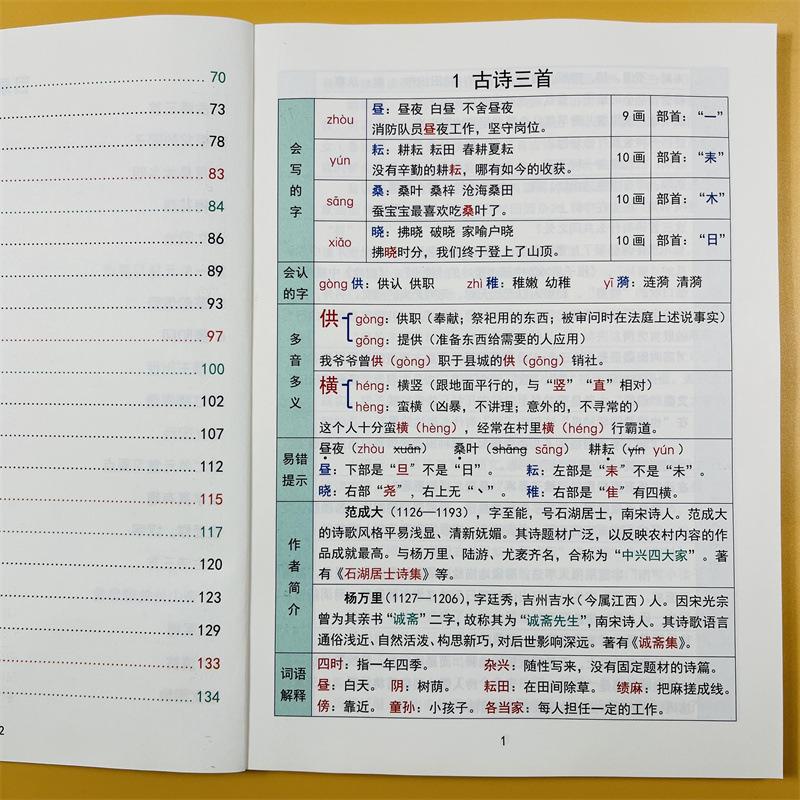 70
73
78
83
84
86
89
93
97
100
102
107
112
115
117
120
123
129
133
134
2
1 古诗三首
会写的字
zhòu
昼：昼夜 白昼 不舍昼夜
消防队员昼夜工作，坚守岗位。
9 画
部首：“一”
yún
耘：耕耘 耘田 春耕夏耘
没有辛勤的耕耘，哪有如今的收获。
10 画
部首：“耒”
sāng
桑：桑叶 桑梓 沧海桑田
蚕宝宝最喜欢吃桑叶了。
10 画
部首：“木”
xiǎo
晓：拂晓 破晓 家喻户晓
拂晓时分，我们终于登上了山顶。
10 画
部首：“日”
会认的字
gòng 供：供认 供职 zhì 稚：稚嫩 幼稚 yī 漪：涟漪 清漪
多音多义
供
gòng：供职（奉献；祭祀用的东西；被审问时在法庭上述说事实）
gōng：提供（准备东西给需要的人应用）
我爷爷曾供（gòng）职于县城的供（gōng）销社。
横
héng：横竖（跟地面平行的，与“竖”“直”相对）
hèng：蛮横（凶暴，不讲理；意外的，不寻常的）
这个人十分蛮横（hèng），经常在村里横（héng）行霸道。
易错提示
昼夜（zhòu xuān） 桑叶（shāng sāng） 耕耘（yín yún）
昼：下部是“旦”不是“日”。 耘：左部是“耒”不是“未”。
晓：右部“尧”，右上无“丶”。 稚：右部是“隹”有四横。
作者简介
范成大（1126—1193），字至能，号石湖居士，南宋诗人。范成大
的诗歌风格平易浅显、清新妩媚。其诗题材广泛，以反映农村内容的作
品成就最高。与杨万里、陆游、尤袤齐名，合称为“中兴四大家”。著
有《石湖居士诗集》等。
杨万里（1127—1206），字廷秀，吉州吉水（今属江西）人。因宋光宗
曾为其亲书“诚斋”二字，故称其为“诚斋先生”，南宋诗人。其诗歌语言
通俗浅近、自然活泼、构思新巧，对后世影响深远。著有《诚斋集》。
词语解释
四时：指一年四季。 杂兴：随性写来，没有固定题材的诗篇。
昼：白天。 阴：树荫。 耘田：在田间除草。 绩麻：把麻搓成线。
傍：靠近。 童孙：小孩子。 各当家：每人担任一定的工作。
1